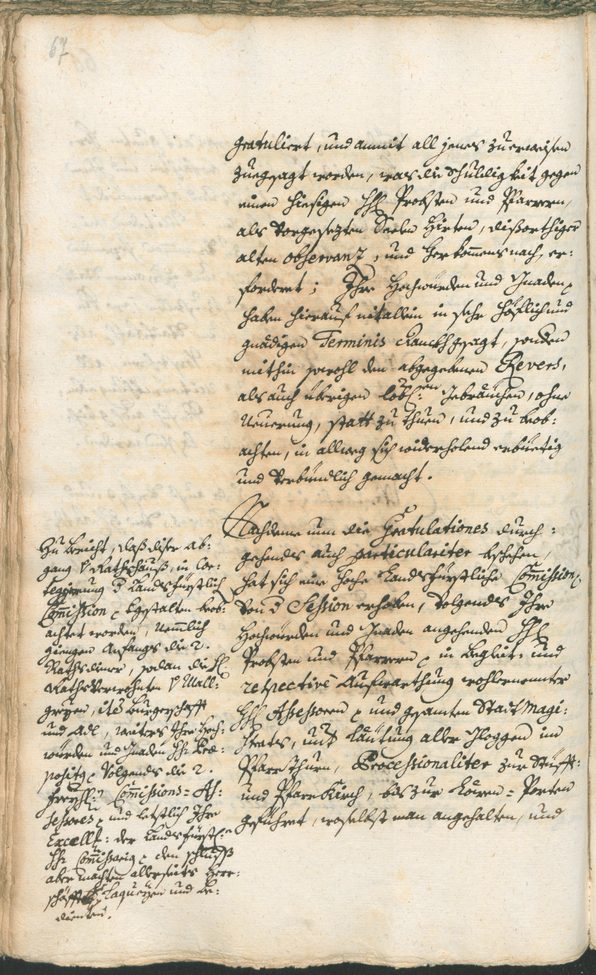 67
gratuliert, und anmit all jenes zuerweisen
zuegesagt worden, was die Schuldigkeit gegen
einen hiesigen HH Probsten und Pfarrern,
als Vorgesezten Seelen Hirten, dißorthiger
alten observanz, und Herkommens nach, er:
fordert; Ihre Hochwürden und Gnaden
haben hierauf nit allein in sehr höflich und
gnädigen Terminis Danckh gesagt, sondern
mithin sowohl dem abgegebenen Revers,
als auch übrigen löbl:en Gebräuchen, ohne
Neuerung, statt zu thuen, und zu beob:
achten, in allweg sich widerholend erbüetig
und verbündlich gemacht.
Nachdeme nun die Gratulationes durch:
gehends auch particulariter beschehen,
hat sich eine hoche Landsfürstliche Commission
von der Session erhoben, volgends Ihre
Hochwürden und Gnaden angehenden HH
Probsten und Pfarrern in Begleit: und
respective Aufwarthung wohlernennter
HH Assessoren und gesamten Stadt Magi:
strats, und Leuthung aller Gloggen im
Pfarr Thurn, Processionaliter zur Stüfft:
und Pfarr Kirch, bis zur Thüren-Porten
geführet, woselbst man angehalten, und
Zu bericht, daß diser ab:
gang Rathshauß, in Cor:
Landsfürstlich
Commission Egstalten beob:
achtet worden, Nemmlich
giengen Anfangs die 2.
Rathsdiener, sodan die HH
Rathsverwohnten Wall:
greyen, die Burgerschafft
und Adl, weiters Ihre Hoch:
würden und Gnaden Hr: Prae:
positg, Volgends die 2.
Commissions-As:
sessores, und letstlich Ihre
Excell: der Landsfürstl:e
Hr: Commissarig, den schluß
aber machten allerseits Herr:
schafftl: Laqueyen und Be:
dienten.